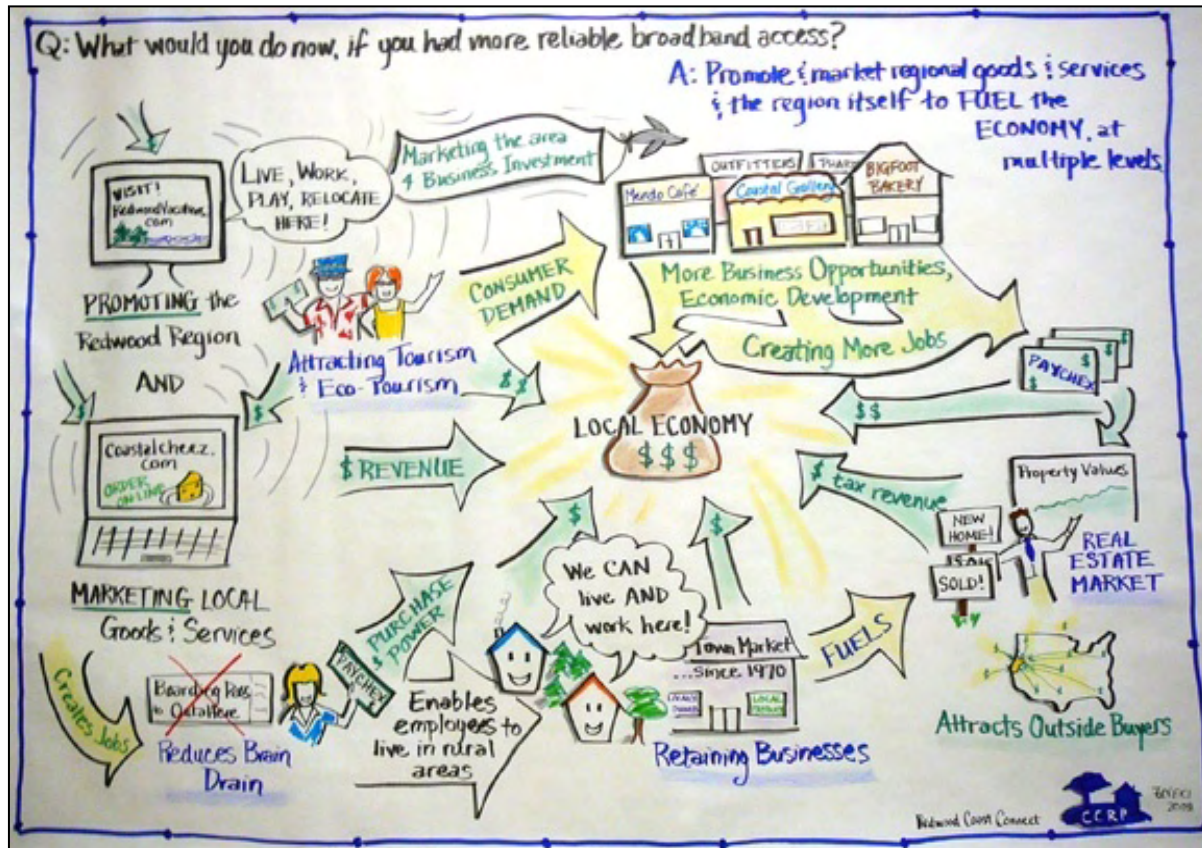 Q: What would you do now, if you had more reliable broadband access?
A: Promote & market regional goods & services
& the region itself to FUEL the
ECONOMY, at
multiple levels
$
VISIT!
RedwoodVacation.
com
LIVE, WORK,
PLAY, RELOCATE
HERE!
Marketing the area
4 Business Investment
OUTFITTERS
Mendo Café
Coastal Gallery
BIGFOOT
BAKERY
PROMOTING the
Redwood Region
AND
Attracting Tourism
& Eco-Tourism
CONSUMER
DEMAND
More Business Opportunities,
Economic Development
Creating More Jobs
PAYCHEX
$ $
$
$
$$
$$
Coastalcheez.
com
ORDER
ONLINE
$ REVENUE
LOCAL ECONOMY
$ $ $
$ tax revenue
Property Values
NEW
HOME!
SOLD!
REAL
ESTATE
MARKET
MARKETING LOCAL
Goods & Services
Creates Jobs
Boarding Pass
to OuttaHere
Reduces Brain
Drain
PAYCHEX
PURCHASE
$ POWER
Enables
employees to
live in rural
areas
$
We CAN
live AND
work here!
$
Town Market
...since 1970
LOCAL
Retaining Businesses
FUELS
Attracts Outside Buyers
Redwood Coast Connect
CCRP
2008